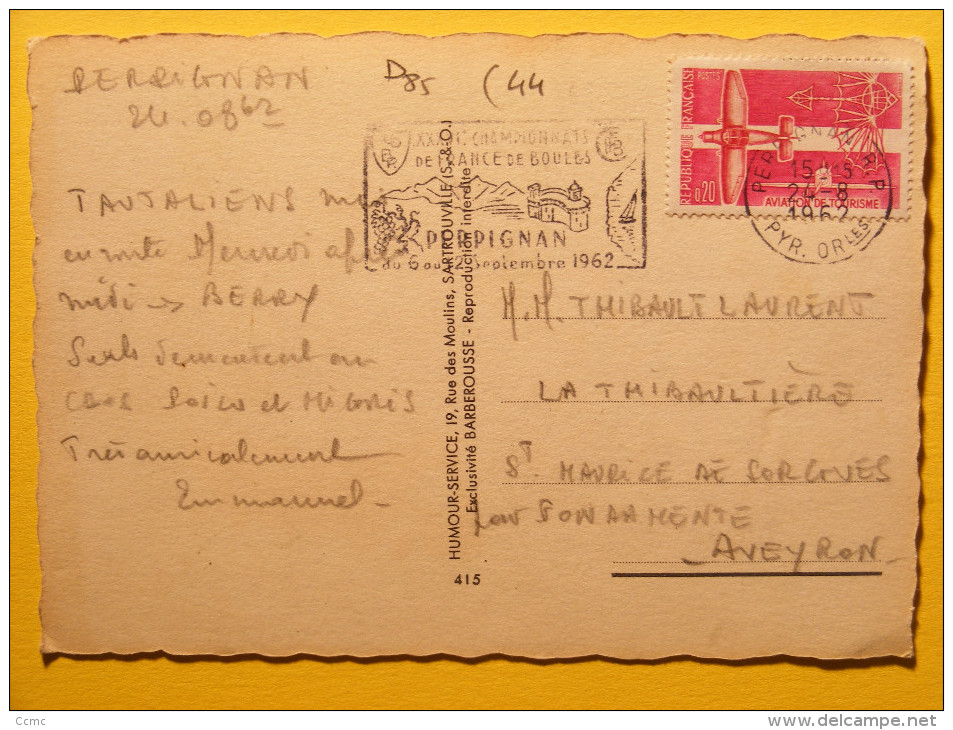 PERPIGNAN
24.08 62
D85 (44
CHAMPIONNATS
DE FRANCE DE BOULES
PERPIGNAN
du 6 au 12 Septembre 1962
REPUBLIQUE FRANÇAISE
POSTES
0,20
AVIATION DE TOURISME
PERPIGNAN R.P
15H-5
24-8
1962
PYR. OR LES
TAUTALIENS
en route Mercredi après
midi → BERRY
Seuls demeurent au
et
Très amicalement
Emmanuel
HUMOUR-SERVICE, 19, Rue des Moulins, SARTROUVILLE (S.&O.)
Exclusivité BARBEROUSSE - Reproduction interdite
415
M.M. THIBAULT LAURENT
LA THIBAULTIÈRE
ST. MAURICE DE SORGUES
par FONDAMENTE
AVEYRON
Ccmc
www.delcampe.net